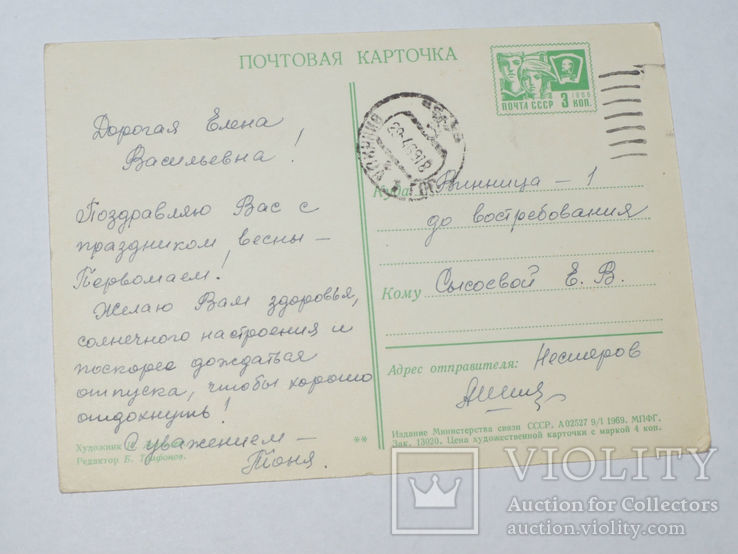 ПОЧТОВАЯ КАРТОЧКА
ПОЧТА СССР 3 КОП.
1966
Дорогая Елена
Васильевна!
Поздравляю Вас с
праздником весны –
Первомаем!
Желаю Вам здоровья,
солнечного настроения и
поскорее дождаться
отпуска, чтобы хорошо
отдохнуть!
С уважением –
Тоня.
Художник
Редактор Б. Трифонов.
**
Куда Винница – 1
до востребования
Кому Сысоевой Е. В.
Адрес отправителя: Нестеров
Издание Министерства связи СССР. А 02527 9/I 1969. МПФГ.
Зак. 13020. Цена художественной карточки с маркой 4 коп.
VIOLITY
Auction for Collectors
auction.violity.com